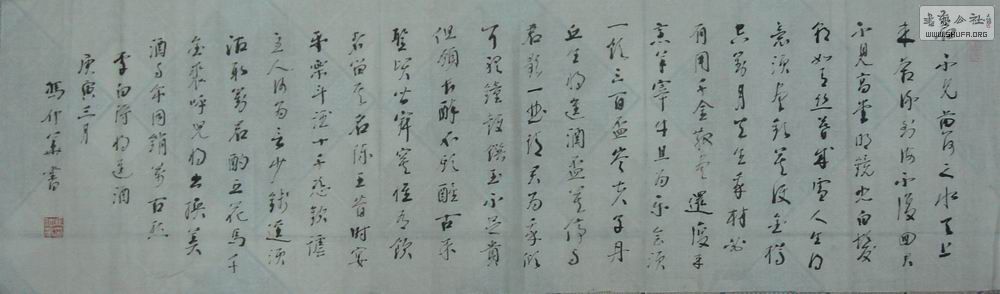 君不見黄河之水天上
来奔流到海不復回君
不見高堂明鏡悲白髮
朝如青丝暮成雪人生得
意须尽歡莫使金樽
空对月天生我材必
有用千金散尽還復来
烹羊宰牛且为乐会须
一飲三百盃岑夫子丹
丘生将进酒盃莫停与
君歌一曲請君为我倾
耳聽鐘鼓饌玉不足貴
但願长醉不願醒古来
聖賢皆寂寞惟有飲
者留其名陈王昔时宴
平樂斗酒十千恣歡謔
主人何为言少錢逕须
沽取对君酌五花马千
金裘呼兒将出换美
酒与尔同銷萬古愁
李白诗将进酒
庚寅三月
馮仲華書
書藝公社
WWW.SHUFA.ORG